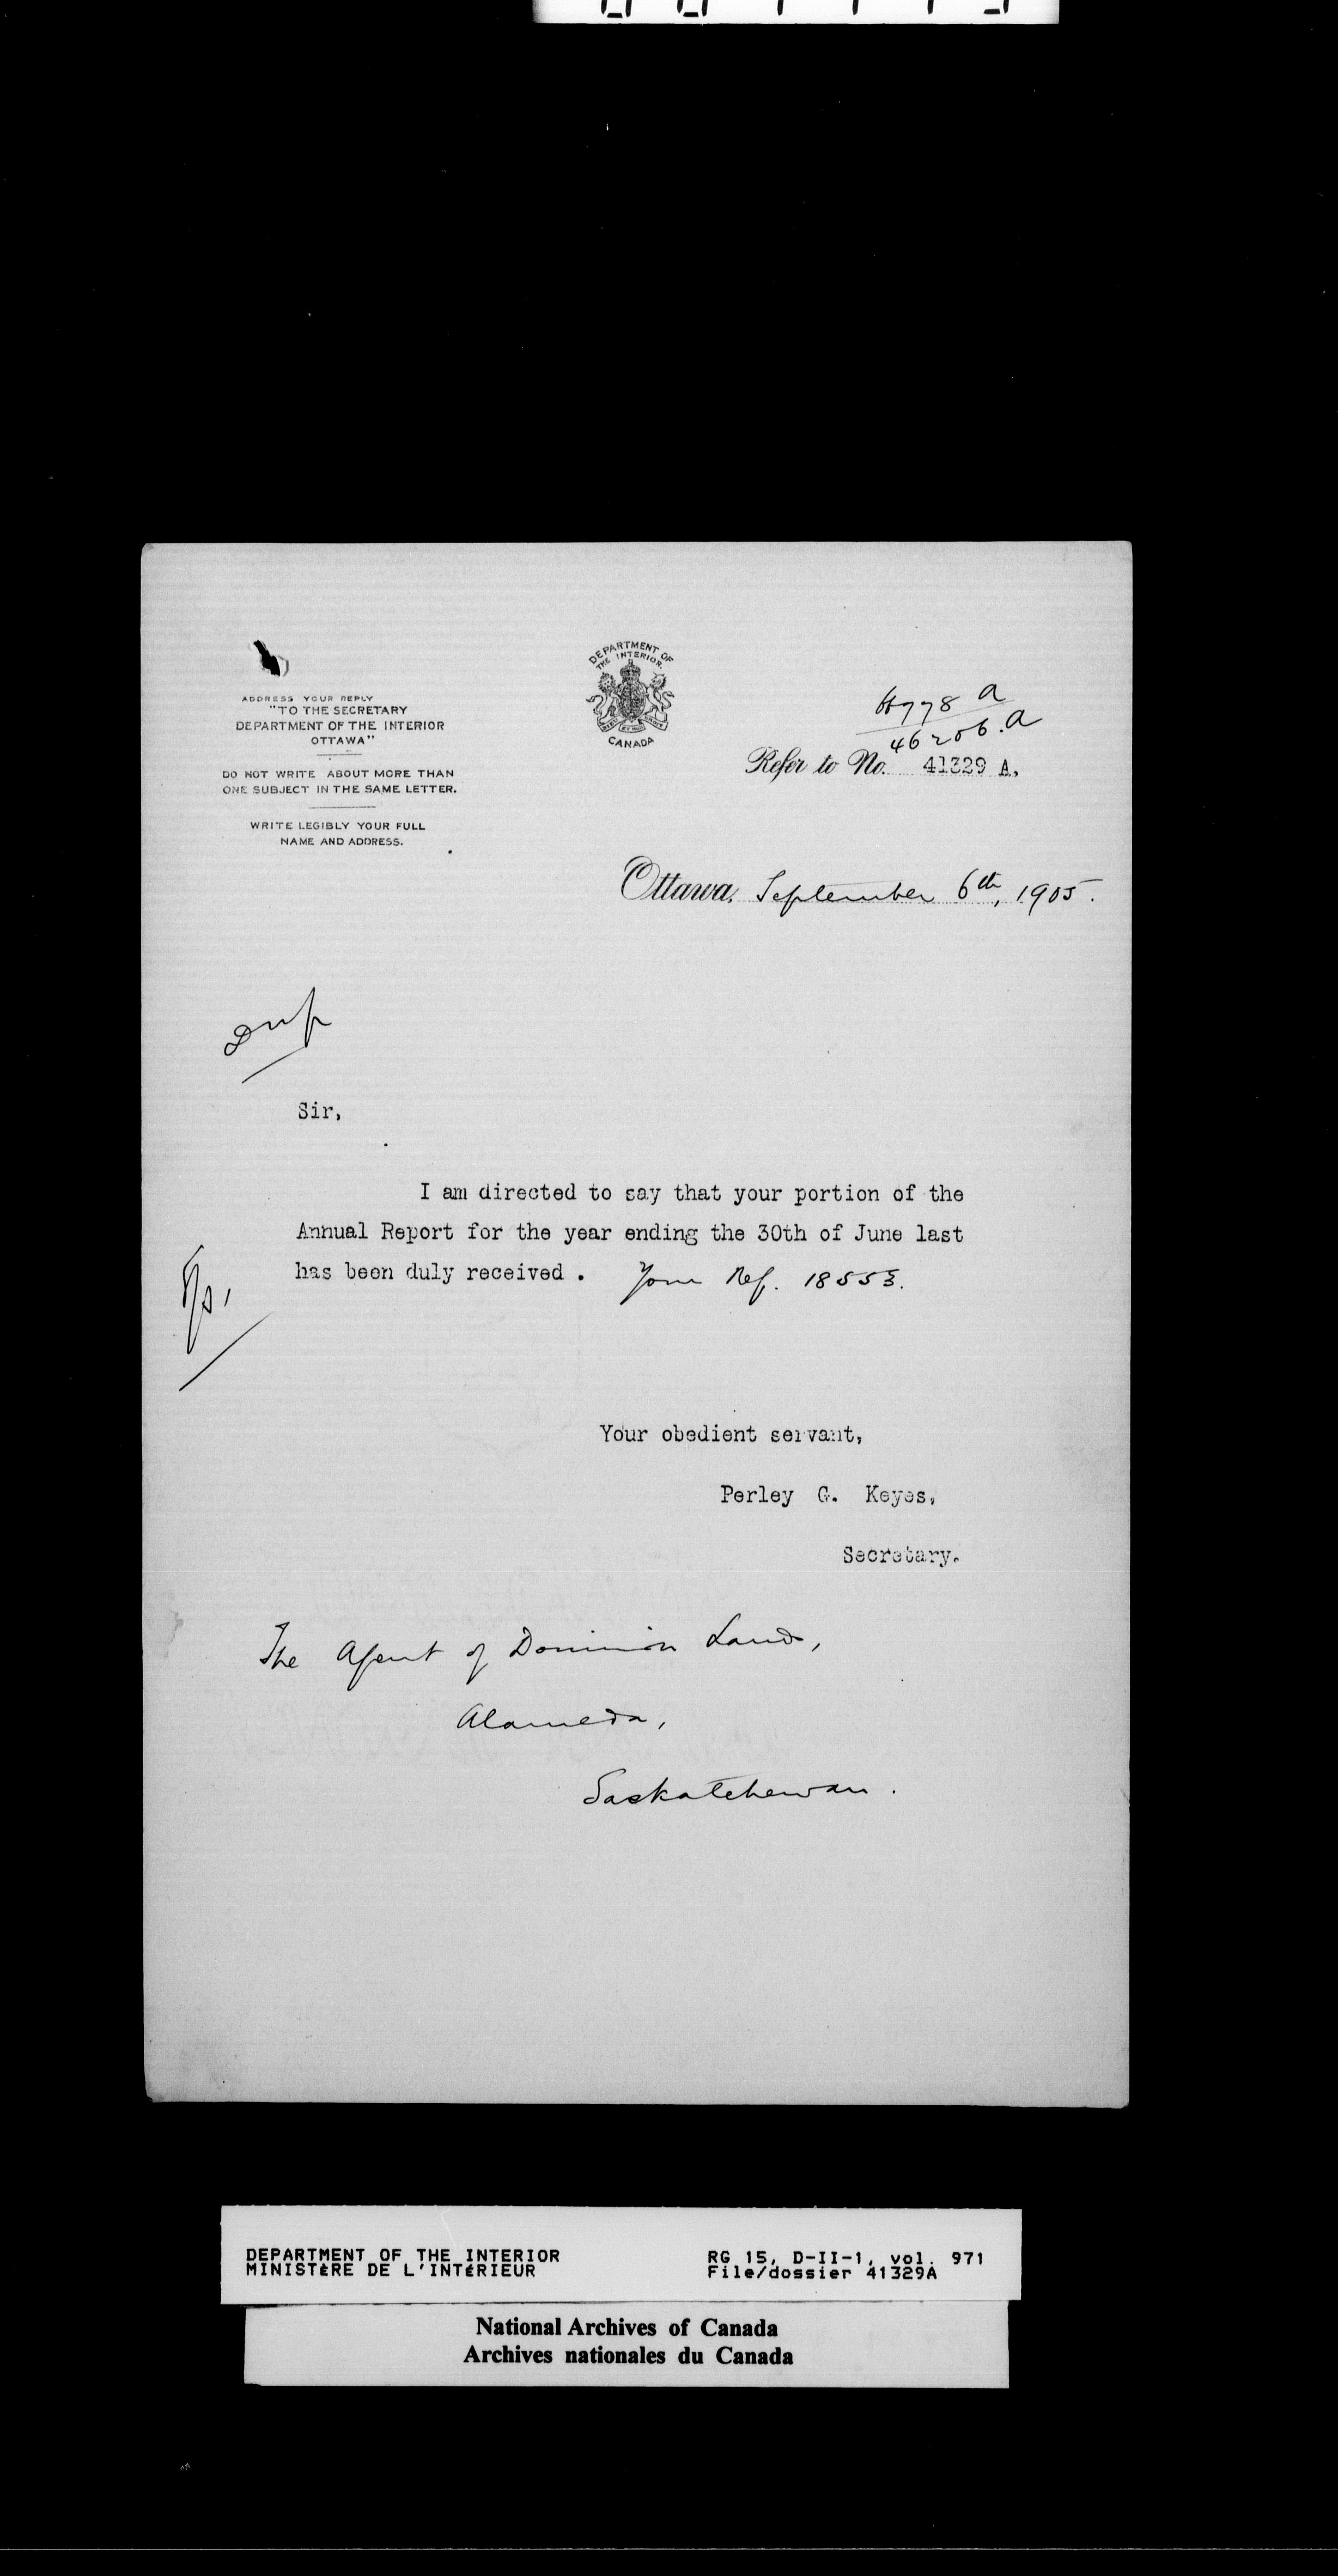 ADDRESS YOUR REPLY
"TO THE SECRETARY
DEPARTMENT OF THE INTERIOR
OTTAWA"
DO NOT WRITE ABOUT MORE THAN
ONE SUBJECT IN THE SAME LETTER.
WRITE LEGIBLY YOUR FULL
NAME AND ADDRESS.
DEPARTMENT OF
THE INTERIOR.
CANADA
46206.a
Refer to No. 41329 A.
Ottawa, September 6th, 1905.
Dup
Sir,
I am directed to say that your portion of the
Annual Report for the year ending the 30th of June last
has been duly received . Your Ref. 18553.
Your obedient servant,
Perley G. Keyes,
Secretary.
The Agent of Dominion Lands,
Alameda,
Saskatchewan.
DEPARTMENT OF THE INTERIOR
MINISTÈRE DE L'INTÉRIEUR
RG 15, D-II-1, vol. 971
File/dossier 41329A
National Archives of Canada
Archives nationales du Canada